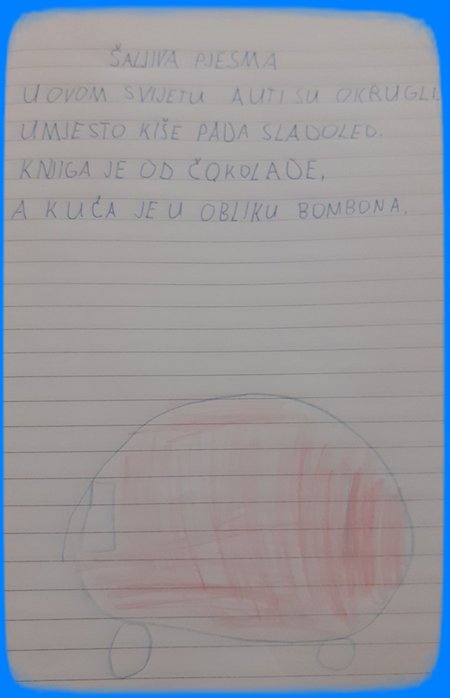 ŠALJIVA PJESMA
U OVOM SVIJETU AUTI SU OKRUGLI
UMJESTO KIŠE PADA SLADOLED.
KNJIGA JE OD ČOKOLADE,
A KUĆA JE U OBLIKU BOMBONA.